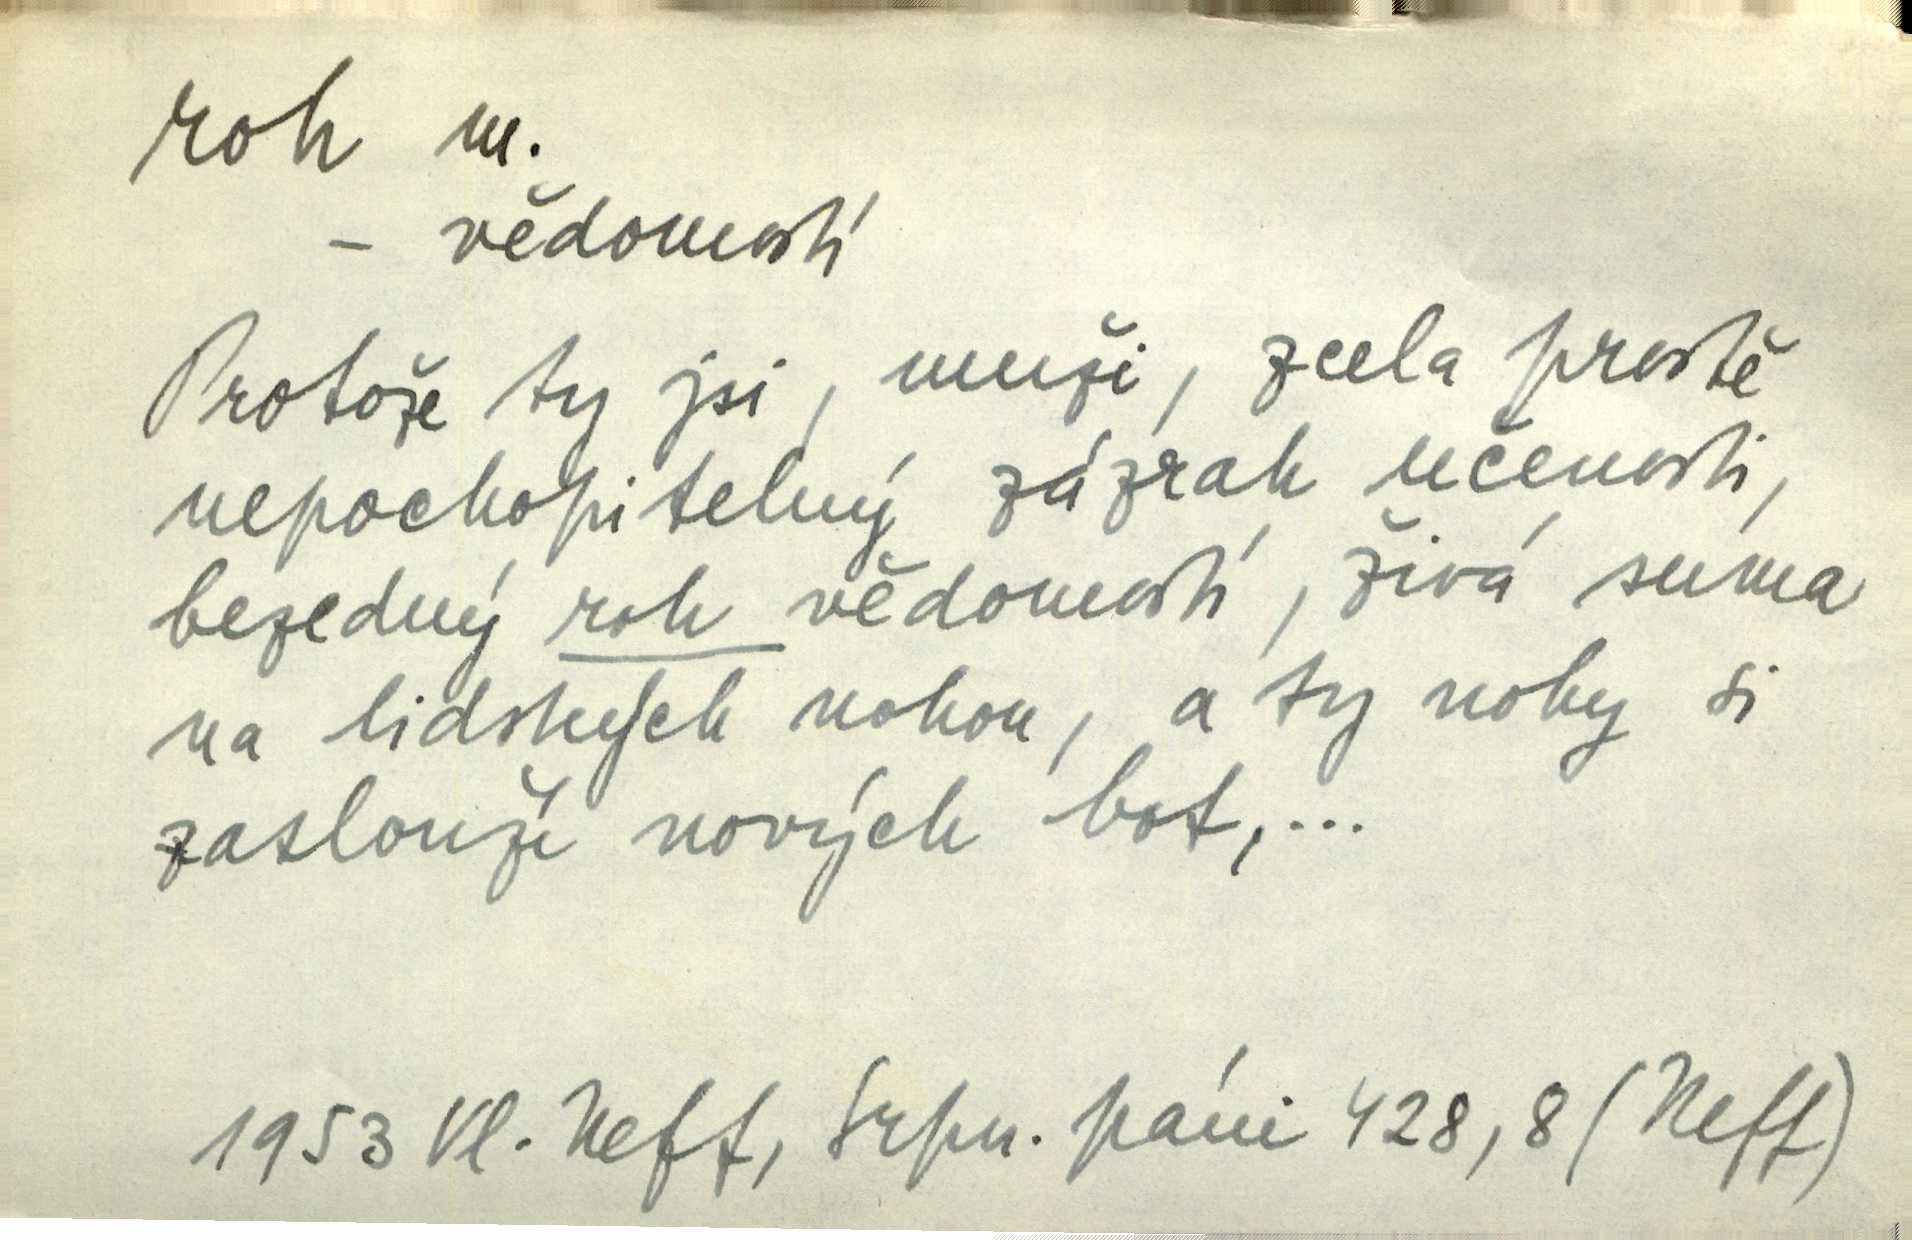 roh m.
– vědomostí
Protože ty jsi, muži, zcela prostě
nepochopitelný zázrak učenosti,
bezedný roh vědomostí, živá suma
na lidských nohou, a ty nohy si
zaslouží nových bot,...
1953 Vl. Neff, Srpn. páni 428, 8 (Neff)